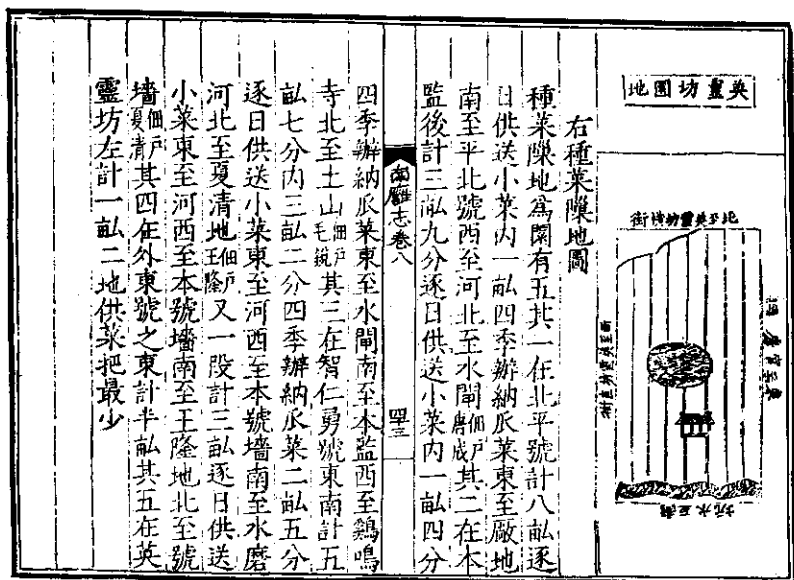 英靈坊園地
北至英靈坊街
右種菜隙地圖
種菜隙地為園有五其一在北平號計八畝逐
日供送小菜內一畝四季辦納瓜菜東至厰地
南至平北號西至河北至水閘佃戶唐成其二在本
監後計三畝九分逐日供送小菜內一畝四分
南雍志卷八
四十三
四季辦納瓜菜東至水閘南至本監西至鷄鳴
寺北至土山佃戶毛銳其三在智仁勇號東南計五
畝七分內三畝二分四季辦納瓜菜二畝五分
逐日供送小菜東至河西至本號墻南至水磨
河北至夏清地佃戶王隆又一段計三畝逐日供送
小菜東至河西至本號墻南至王隆地北至號
墻佃戶夏清其四在外東號之東計半畝其五在英
靈坊左計一畝二地供菜把最少